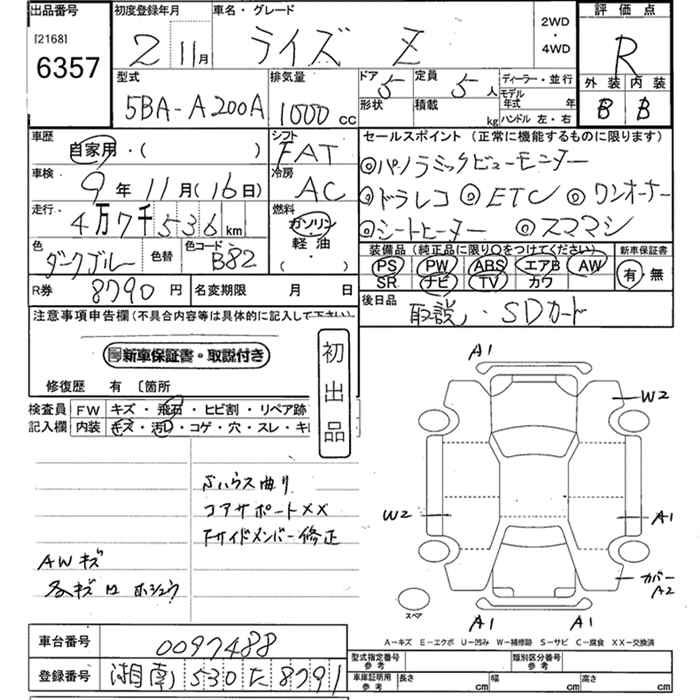 出品番号 初度登録年月 車名・グレード 2WD・4WD 評価点
[2168] 6357 2 11月 ライズ Z R
型式 排気量 ドア 5 定員 5人 ディーラー・並行 外装 内装
5BA-A200A 1000cc 形状 積載 kg モデル年式 年 B B
ハンドル 左・右
車歴 自家用・( ) シフト FAT セールスポイント (正常に機能するものに限ります)
車検 9年11月(16日) 冷房 AC ◎パノラミックビューモニター
◎ドラレコ ◎ETC ◎ワンオーナー
走行 4万7千536km 燃料 ガソリン 軽油 (・) ◎シートヒーター ◎スママシ
色 ダークブルー 色替 色コード B82 装備品 (純正品に限り○をつけてください) 新車保証書
PS PW ABS エアB AW 有・無
SR ナビ TV カワ
R券 8790円 名変期限 月 日 後日品 取説、SDカード
注意事項申告欄(不具合内容等は具体的に記入して下さい)
新車保証書・取説付き
初出品
修復歴 有 〔箇所
検査員記入欄 FW キズ・飛石・ヒビ割・リペア跡
内装 キズ・汚レ・コゲ・穴・スレ・キ
ハウス曲り
コアサポートXX
Fサイドメンバー修正
AWキズ
A1
W2
W2
A1
カバーA2
A1 A1
スペア
A-キズ E-エクボ U-凹み W-補修跡 S-サビ C-腐食 XX-交換済
車台番号 0097488 型式指定番号 参考 類別区分番号 参考
登録番号 湘南 530 た 8791 車庫証明用 参考 長さ cm 幅 cm 高さ cm